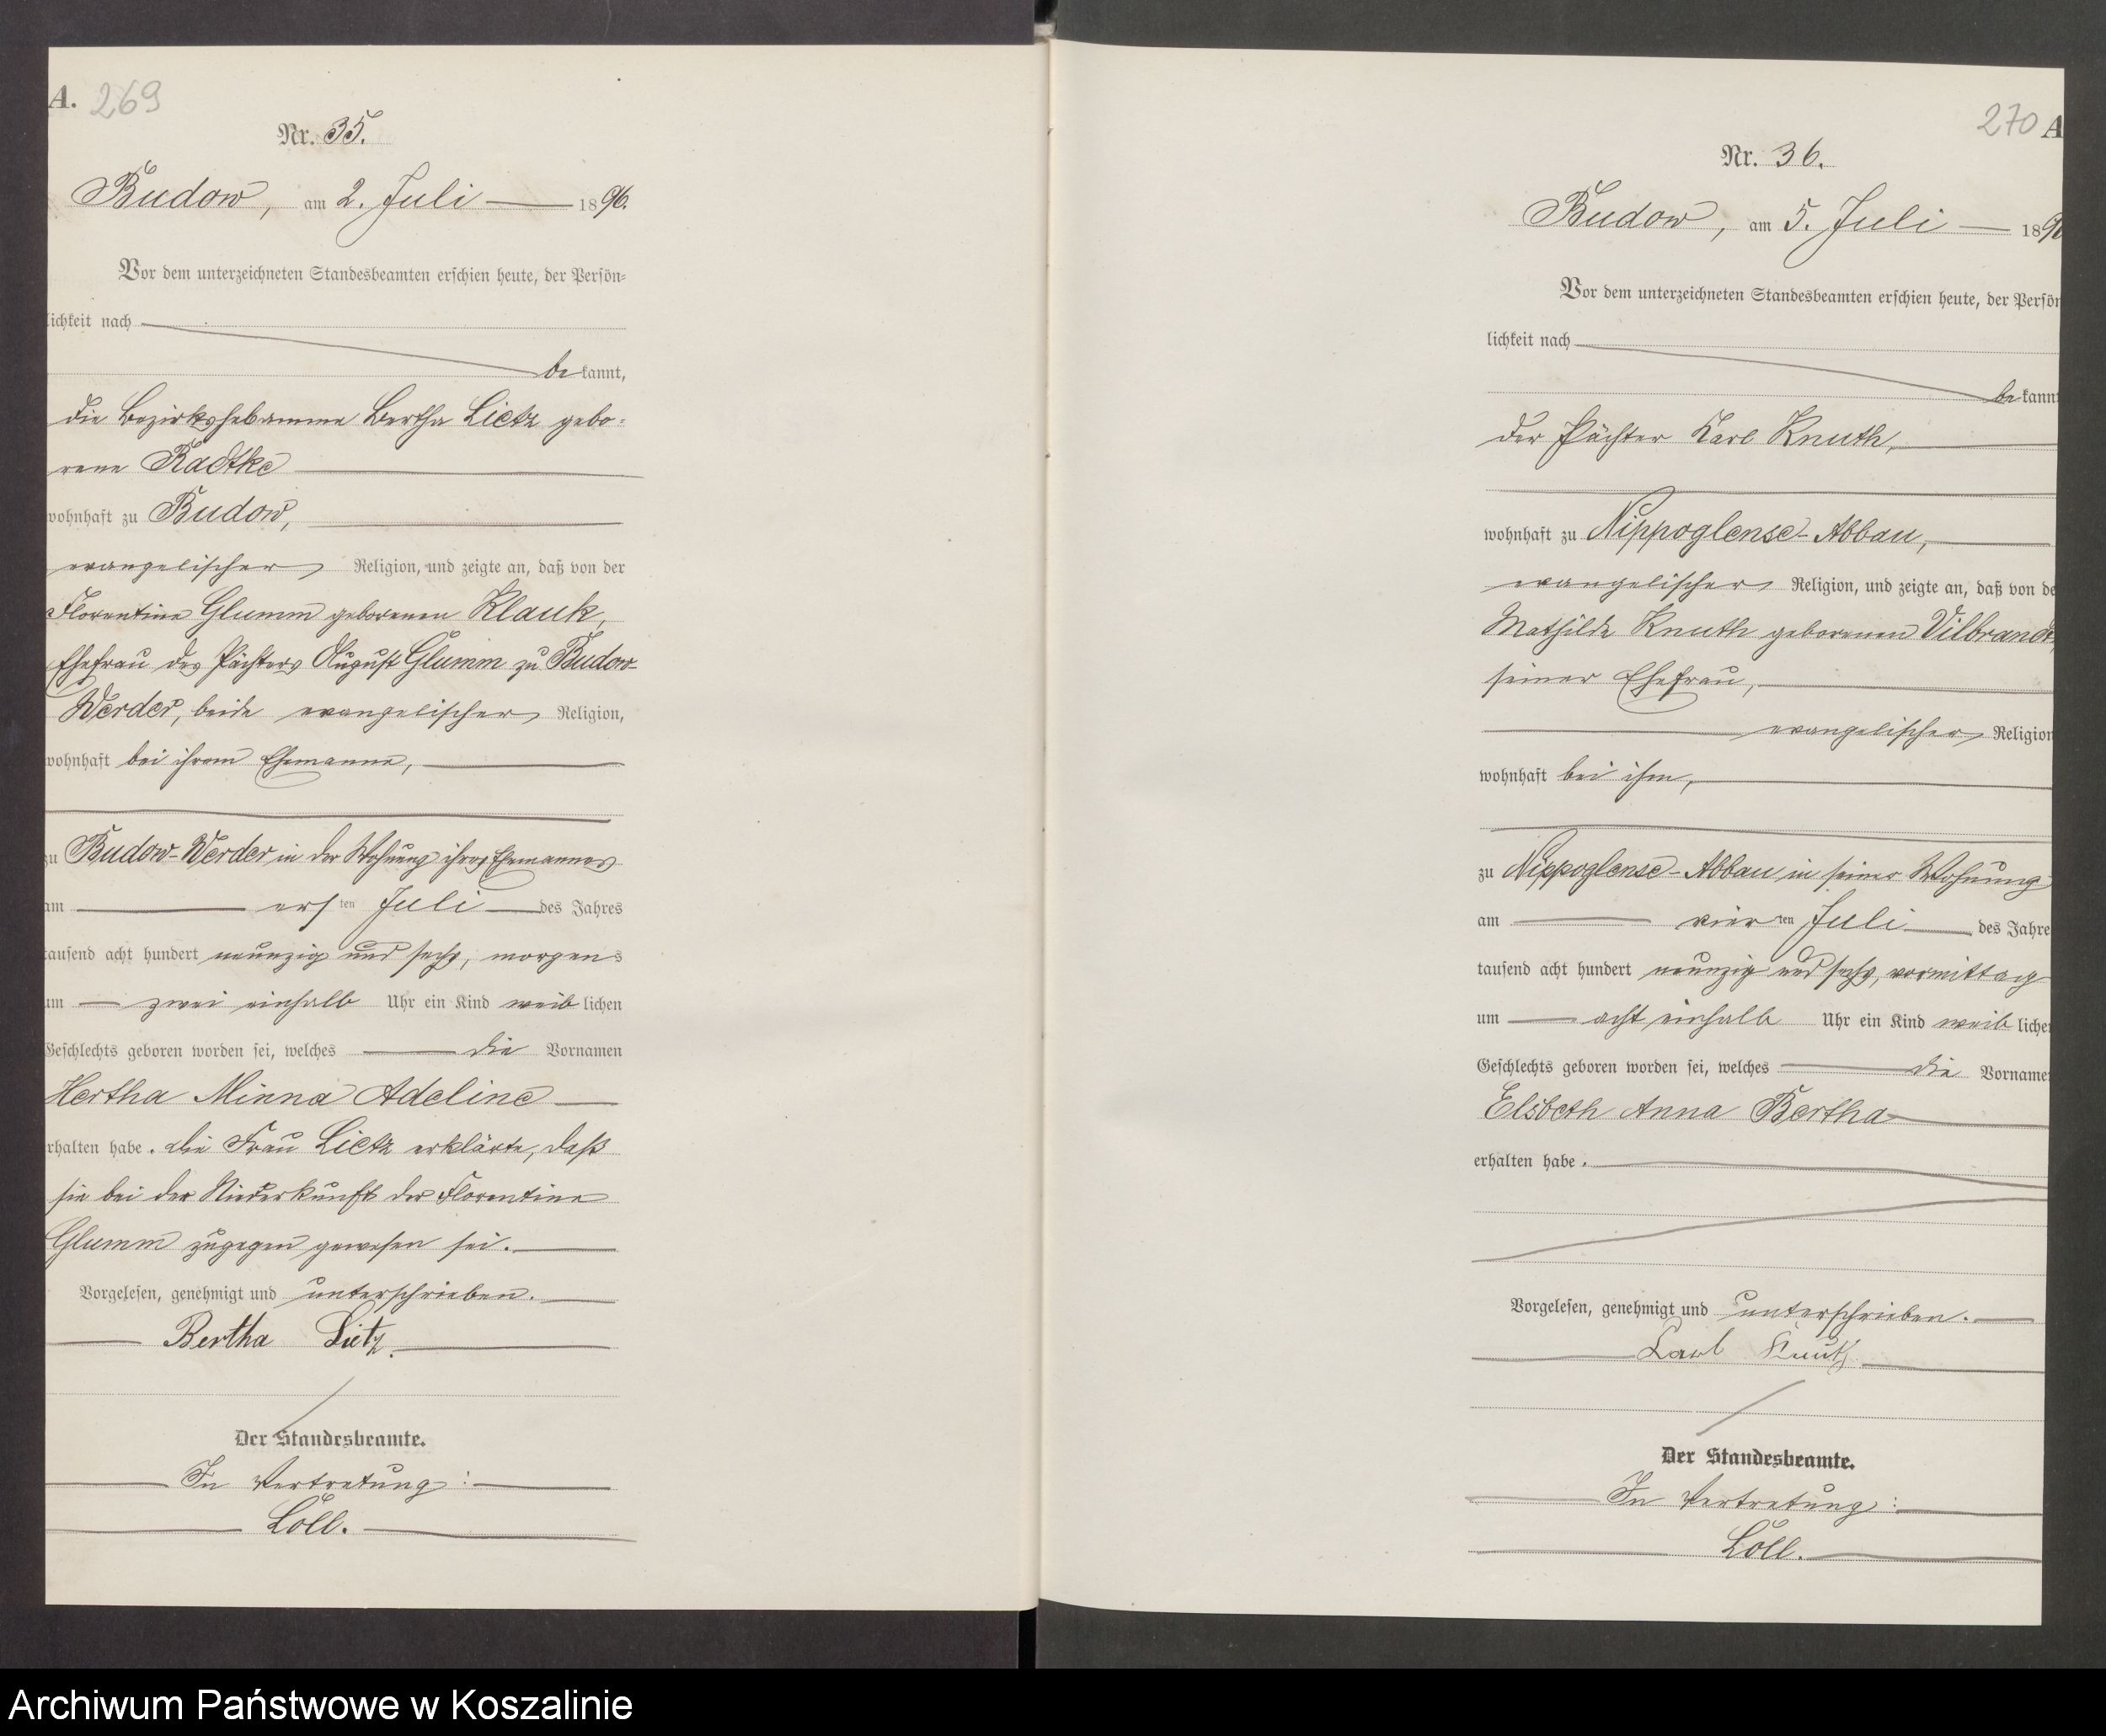 A. 269
Nr. 35.
Budow, am 2. Juli 1896.
Vor dem unterzeichneten Standesbeamten erschien heute, der Persön=
lichkeit nach
bekannt,
die Bezirkshebamme Bertha Lietz gebo=
rene Radtke
wohnhaft zu Budow,
evangelischer Religion, und zeigte an, daß von der
Florentine Glumm geborenen Klauk,
Ehefrau des Pächters August Glumm zu Budow-
Werder, beide evangelischer Religion,
wohnhaft bei ihrem Ehemanne,
zu Budow-Werder in der Wohnung ihres Ehemannes
am ersten Juli des Jahres
tausend acht hundert neunzig und sechs, morgens
um zwei einhalb Uhr ein Kind weiblichen
Geschlechts geboren worden sei, welches die Vornamen
Hertha Minna Adeline
erhalten habe. Die Frau Lietz erklärte, daß
sie bei der Niederkunft der Florentine
Glumm zugegen gewesen sei.
Vorgelesen, genehmigt und unterschrieben.
Bertha Lietz.
Der Standesbeamte.
In Vertretung:
Löll.
270 A
Nr. 36.
Budow, am 5. Juli 189
Vor dem unterzeichneten Standesbeamten erschien heute, der Persön
lichkeit nach
bekannt
der Pächter Karl Knuth,
wohnhaft zu Nippoglense-Abbau,
evangelischer Religion, und zeigte an, daß von de
Mathilde Knuth geborenen Vilbrandt,
seiner Ehefrau,
evangelischer Religion
wohnhaft bei ihm,
zu Nippoglense-Abbau in seiner Wohnung
am vierten Juli des Jahre
tausend acht hundert neunzig und sechs, vormittag
um acht einhalb Uhr ein Kind weibliche
Geschlechts geboren worden sei, welches die Vorname
Elsbeth Anna Bertha
erhalten habe.
Vorgelesen, genehmigt und unterschrieben.
Carl Knuth
Der Standesbeamte.
In Vertretung:
Löll.
Archiwum Państwowe w Koszalinie